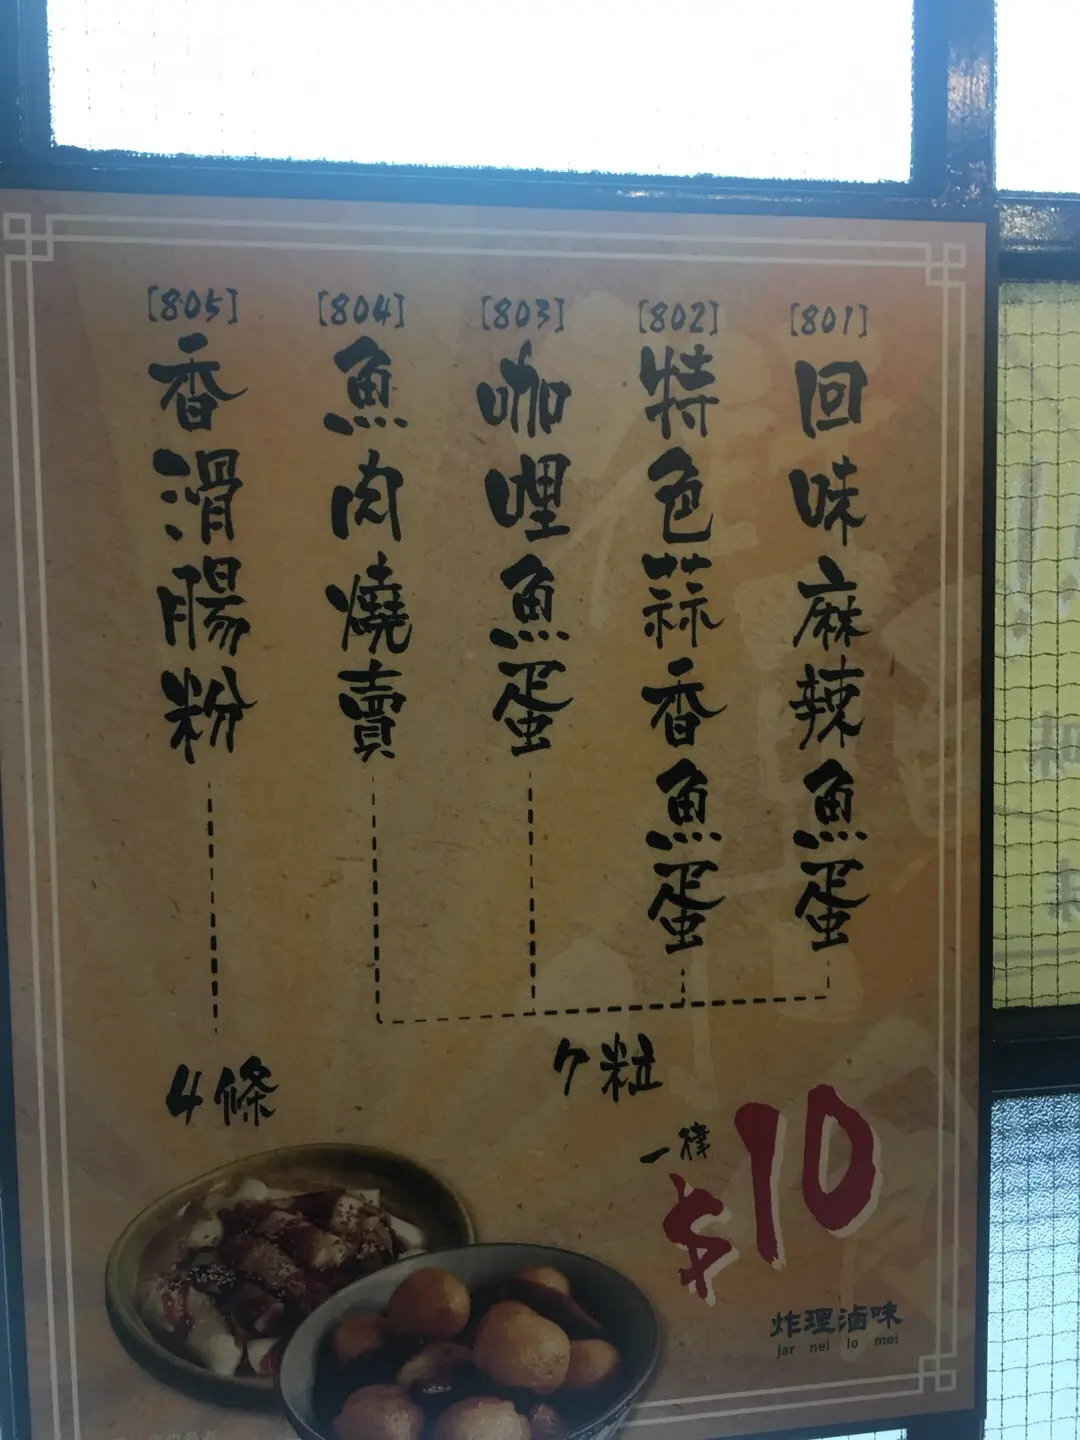 [801]
回味麻辣魚蛋
[802]
特色蒜香魚蛋
[803]
咖哩魚蛋
[804]
魚肉燒賣
[805]
香滑腸粉
7粒
4條
一律
$10
炸理滷味
jar nei lo mei